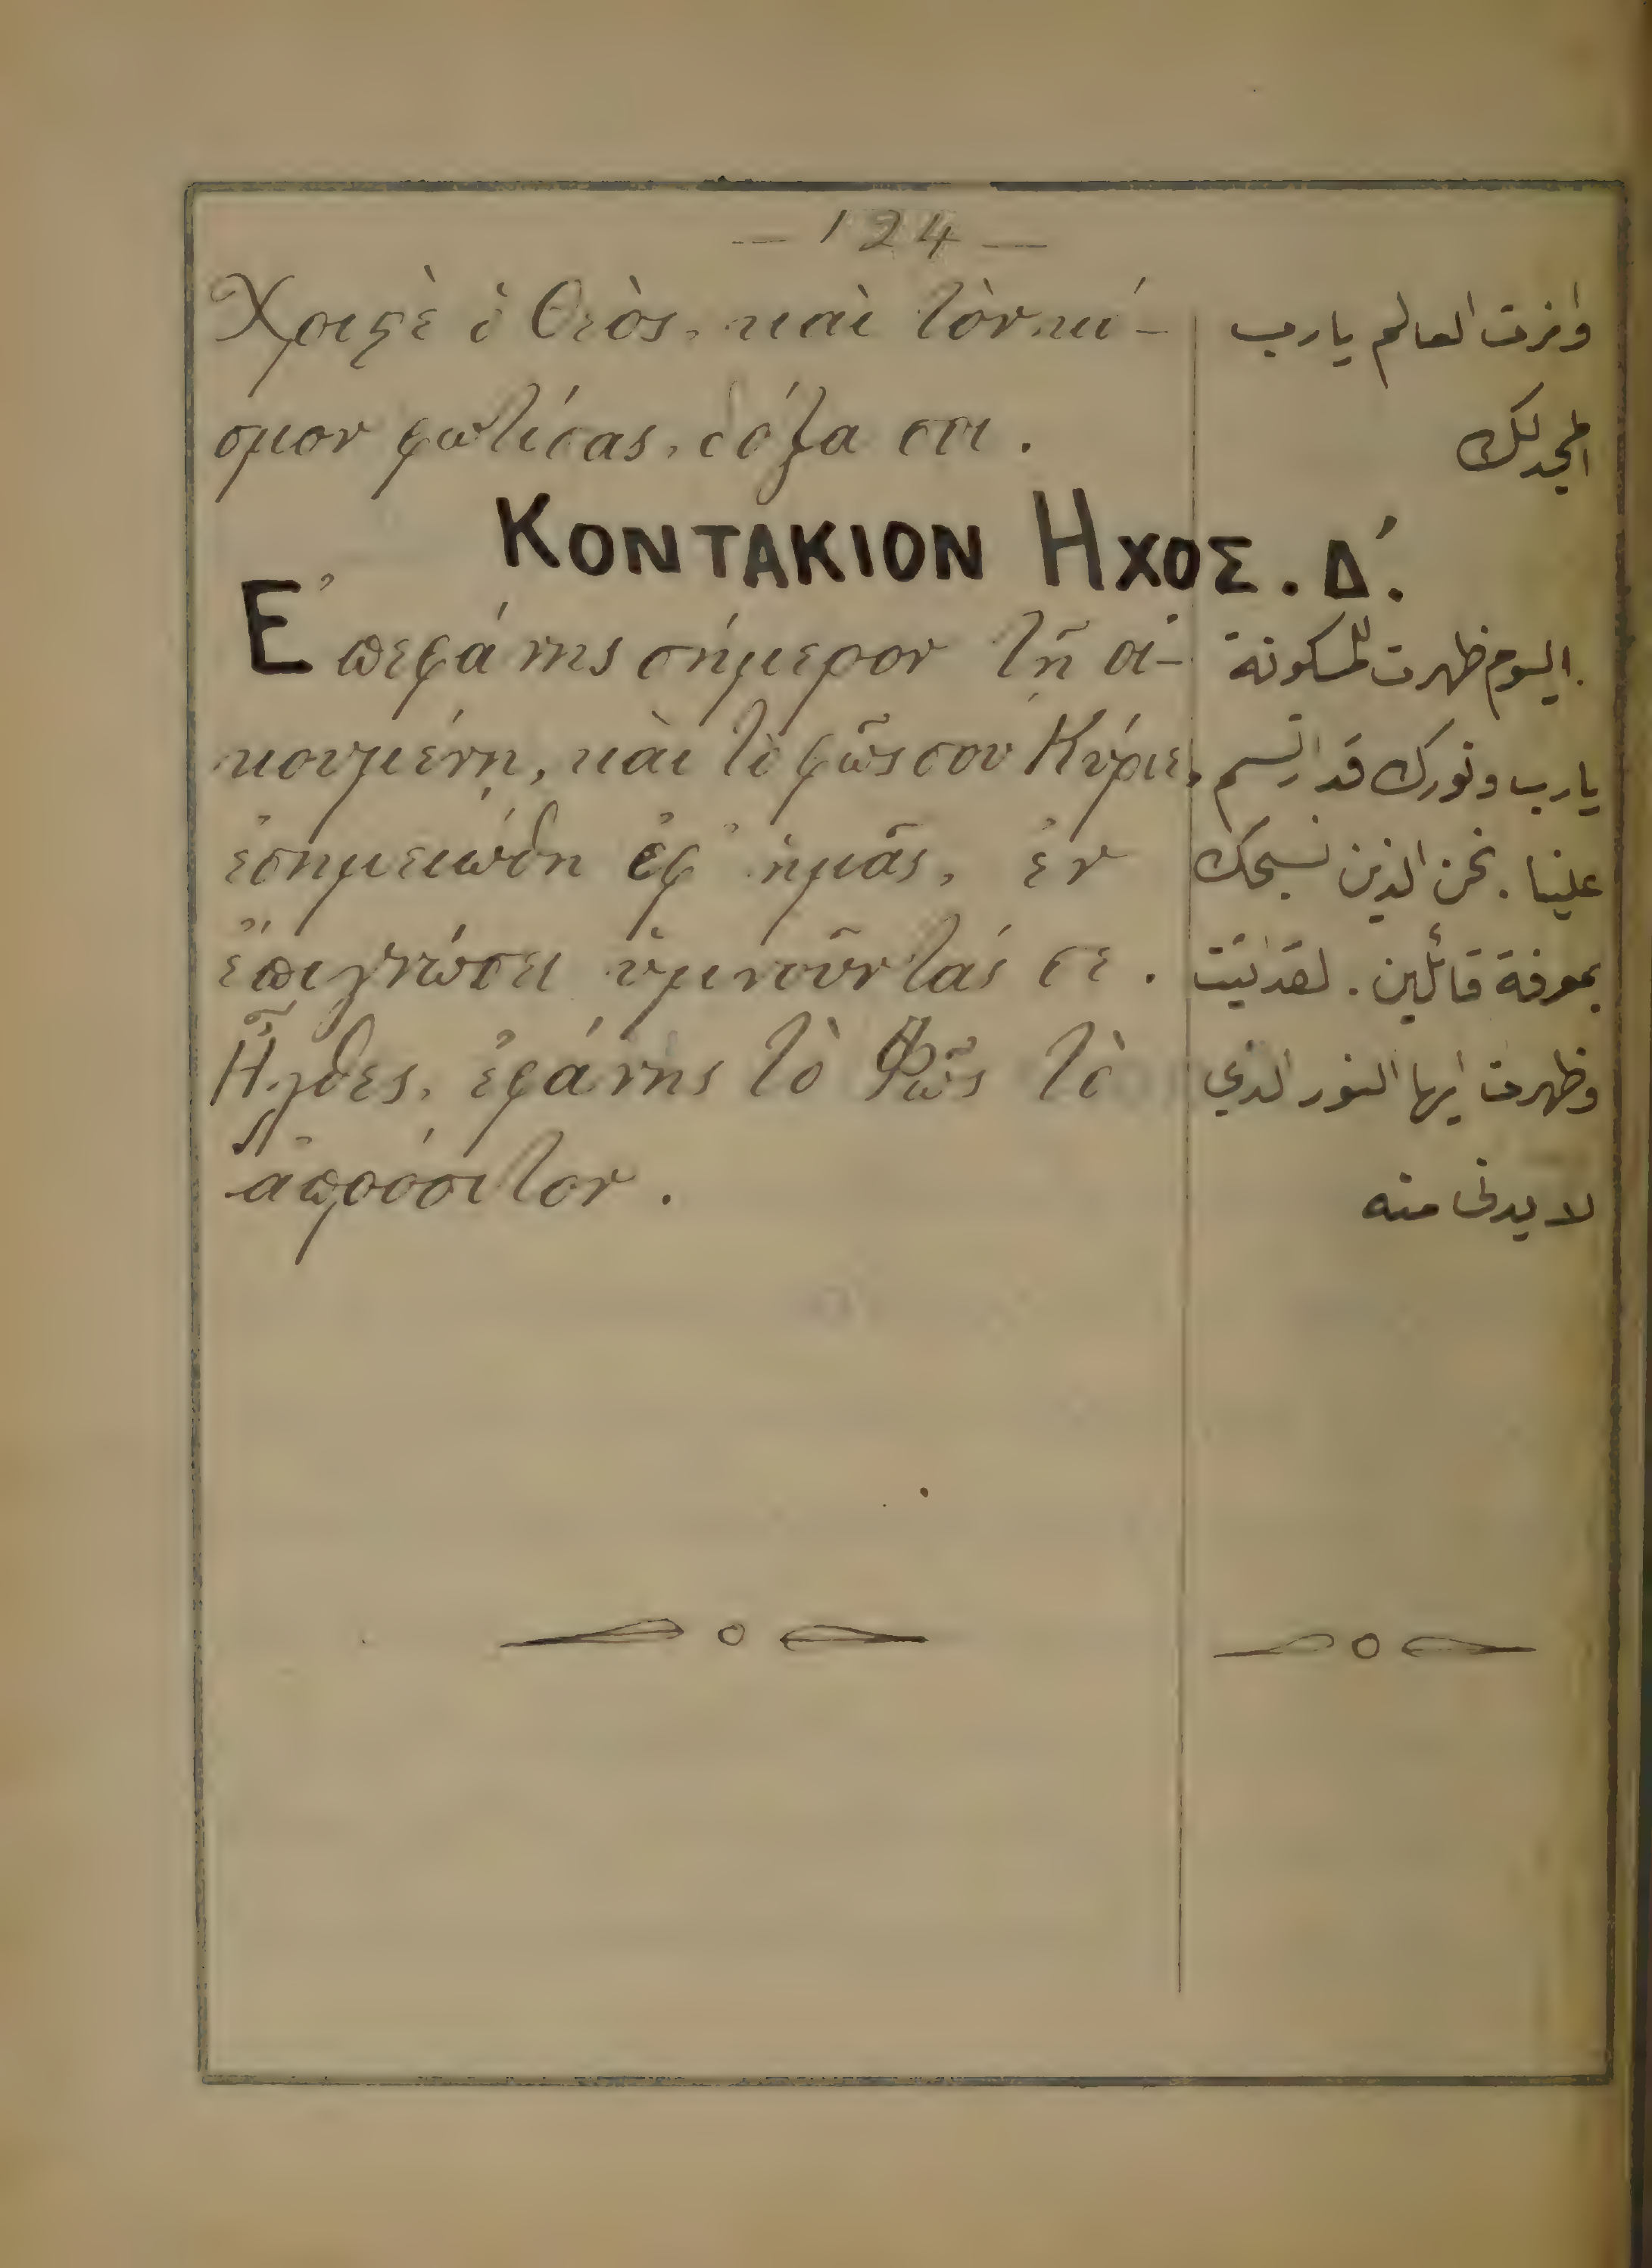 — 124 —
Χριϛὲ ὁ Θεὸς, καὶ τὸν κό-
σμον φωτίσας, δόξα σοι.
ΚΟΝΤΑΚΙΟΝ ΗΧΟΣ. Δ΄.
Ἐπεφάνης σήμερον τῇ οἰ-
κουμένῃ, καὶ τὸ φῶς σου Κύριε,
ἐσημειώθη ἐφ᾽ ἡμᾶς, ἐν
ἐπιγνώσει ὑμνοῦντάς σε.
Ἦλθες, ἐφάνης τὸ Φῶς τὸ
ἀπρόσιτον.
وانرت العالم يارب
المجد لك
اليوم ظهرت للمسكونة
يارب ونورك قد ارتسم
علينا. نحن الذين نسبحك
بمعرفة قائلين. لقد اتيت
وظهرت ايها النور الذي
لا يدنى منه